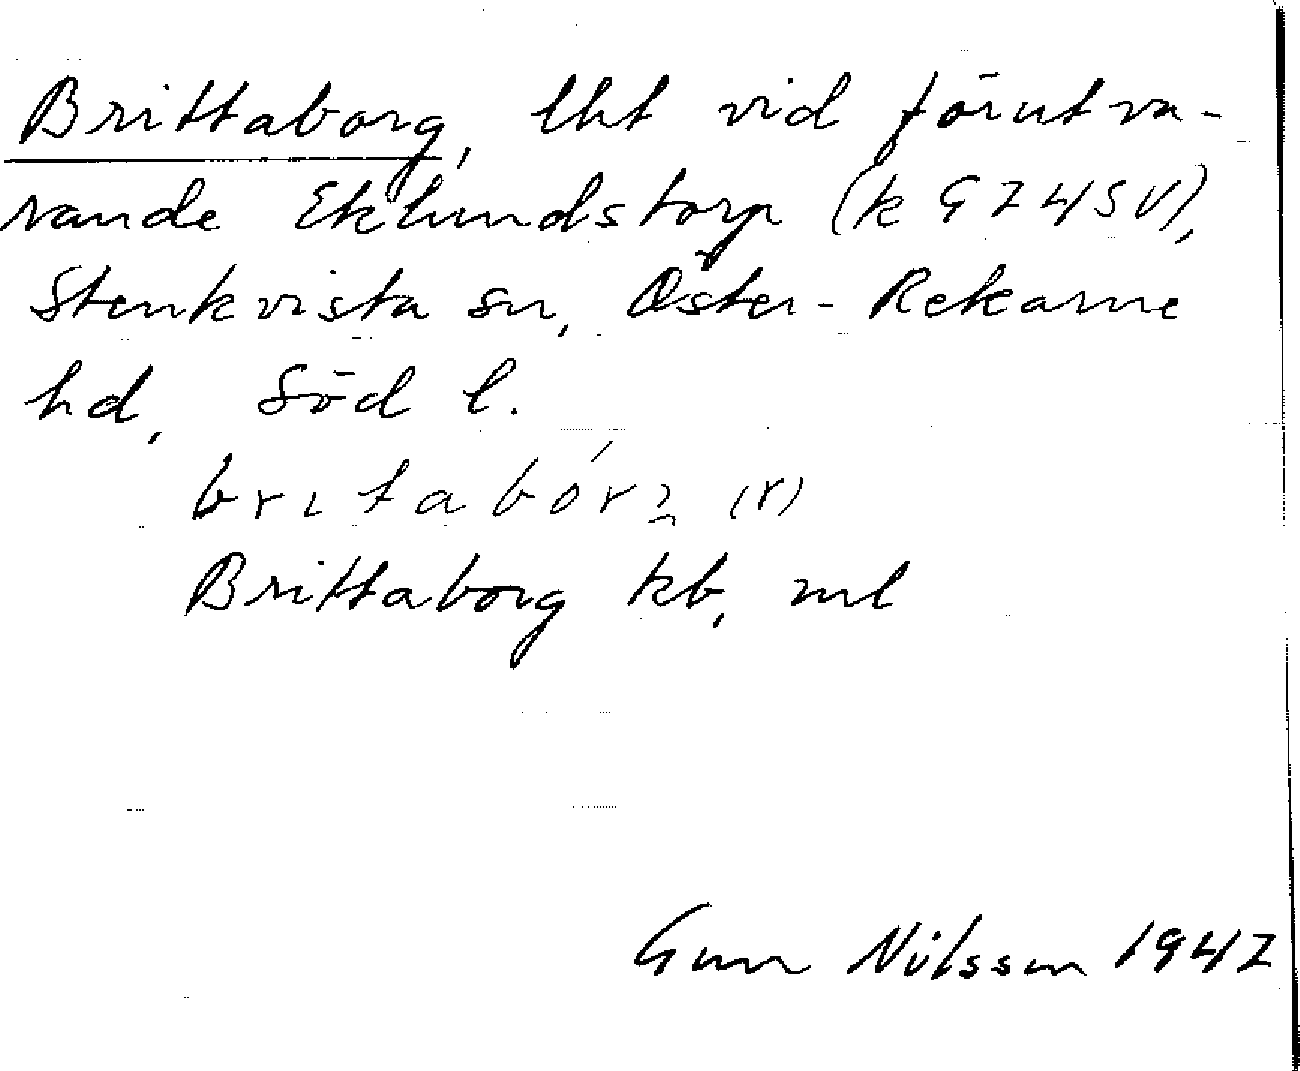 Brittaborg, lht vid förutva-
rande Eklundstorp (k G74SV),
Stenkvista sn, Öster-Rekarne
hd, Söd l.
Brittaborg kb, ml
Gun Nilsson 1947